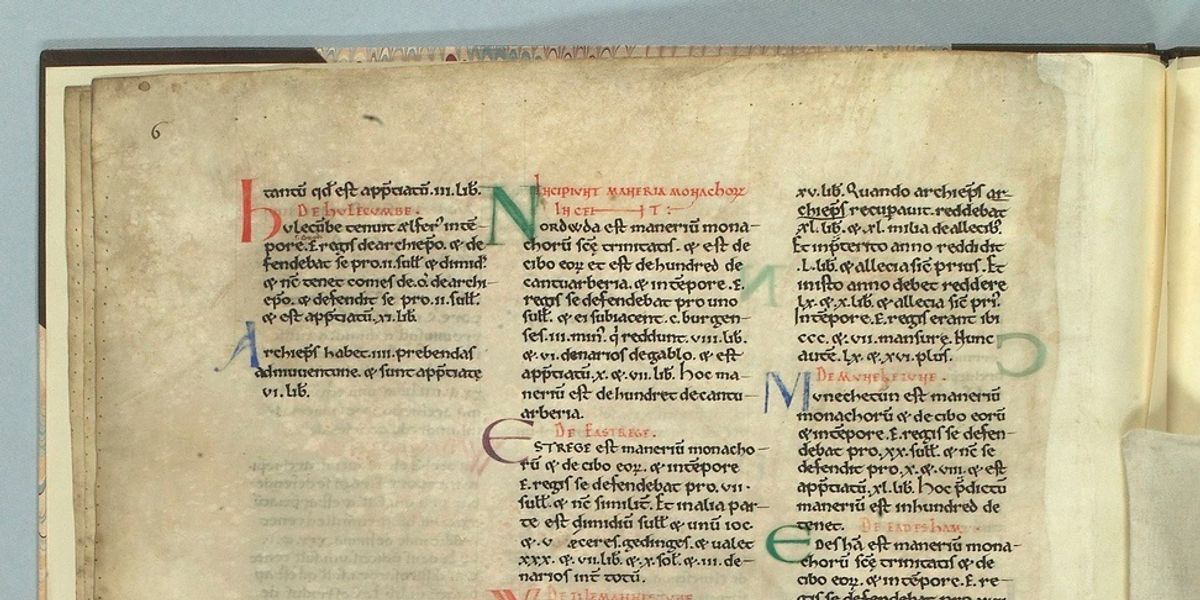 6
tantū qđ est app̄tiatū .iii. lib.
De hulecumbe.
Hulecūbe tenuit ælfer' intē-
pore .E. regis de archiep̄o. & de
fendebat se pro .ii. sull' & dimid'.
& nc̄ tenet comes de .o. de archi-
ep̄o. & defendit se pro .ii. sull'.
& est app̄tiatū .xi. lib.
Archiep̄s habet .iiii. prebendas
admuuentune. & sunt app̄tiatę
vi. lib.
Incipiunt maneria monachorꝝ
Nordƿuda est maneriū mona-
chorū scę trinitatis. & est de
cibo eorꝝ et est de hundred de
cantuarberia. & intēpore .E.
regis se defendebat pro uno
sull'. & ei subiacent .c. burgen-
ses .iii. min'. q̇ reddunt .viii. lib.
& .vi. denarios degablo. & est
app̄tiatū .x. & .vii. lib. Hoc ma-
neriū est de hundret de cantu-
arberia.
De Eastrege.
ESTREGE est maneriū monacho-
rū & de cibo eorꝝ. & intēpore
E. regis se defendebat pro .vii.
sull'. & nc̄ similit'. Et in alia par-
te est dimidiū sull' & unū ioc.
& .v. æceres. gedinges. & ualet
xxx. & .vii. lib. & .x. sol'. & .iii. de-
narios int' totū.
De Tilemannestune
xv. lib. Quando archiep̄s ar-
chiep̄s recupauit. reddebat
xl. lib. & .xl. milia de allecib'.
Et inp̄terito anno reddidit
.L. lib. & allecia sic̄ prius. Et
in isto anno debet reddere
lx. & .x. lib. & allecia sic̄ pri'.
Intēpore .E. regis erant ibi
ccc. & .vii. mansurę. Hunc
autē .lx. & .xvi. plus.
De Munehetune.
Munechetun est maneriū
monachorū & de cibo eorū
& intēpore .E. regis se defen-
debat pro .xx. sull'. & nc̄ se
defendit pro .x. & .viii. & est
app̄tiatū .xl. lib. Hoc p̄dictū
maneriū est in hundred de
tenet. De Eadesham.
Edeshā est maneriū mona-
chorū scę trinitatis & de
cibo eorꝝ. & intēpore .E. re-